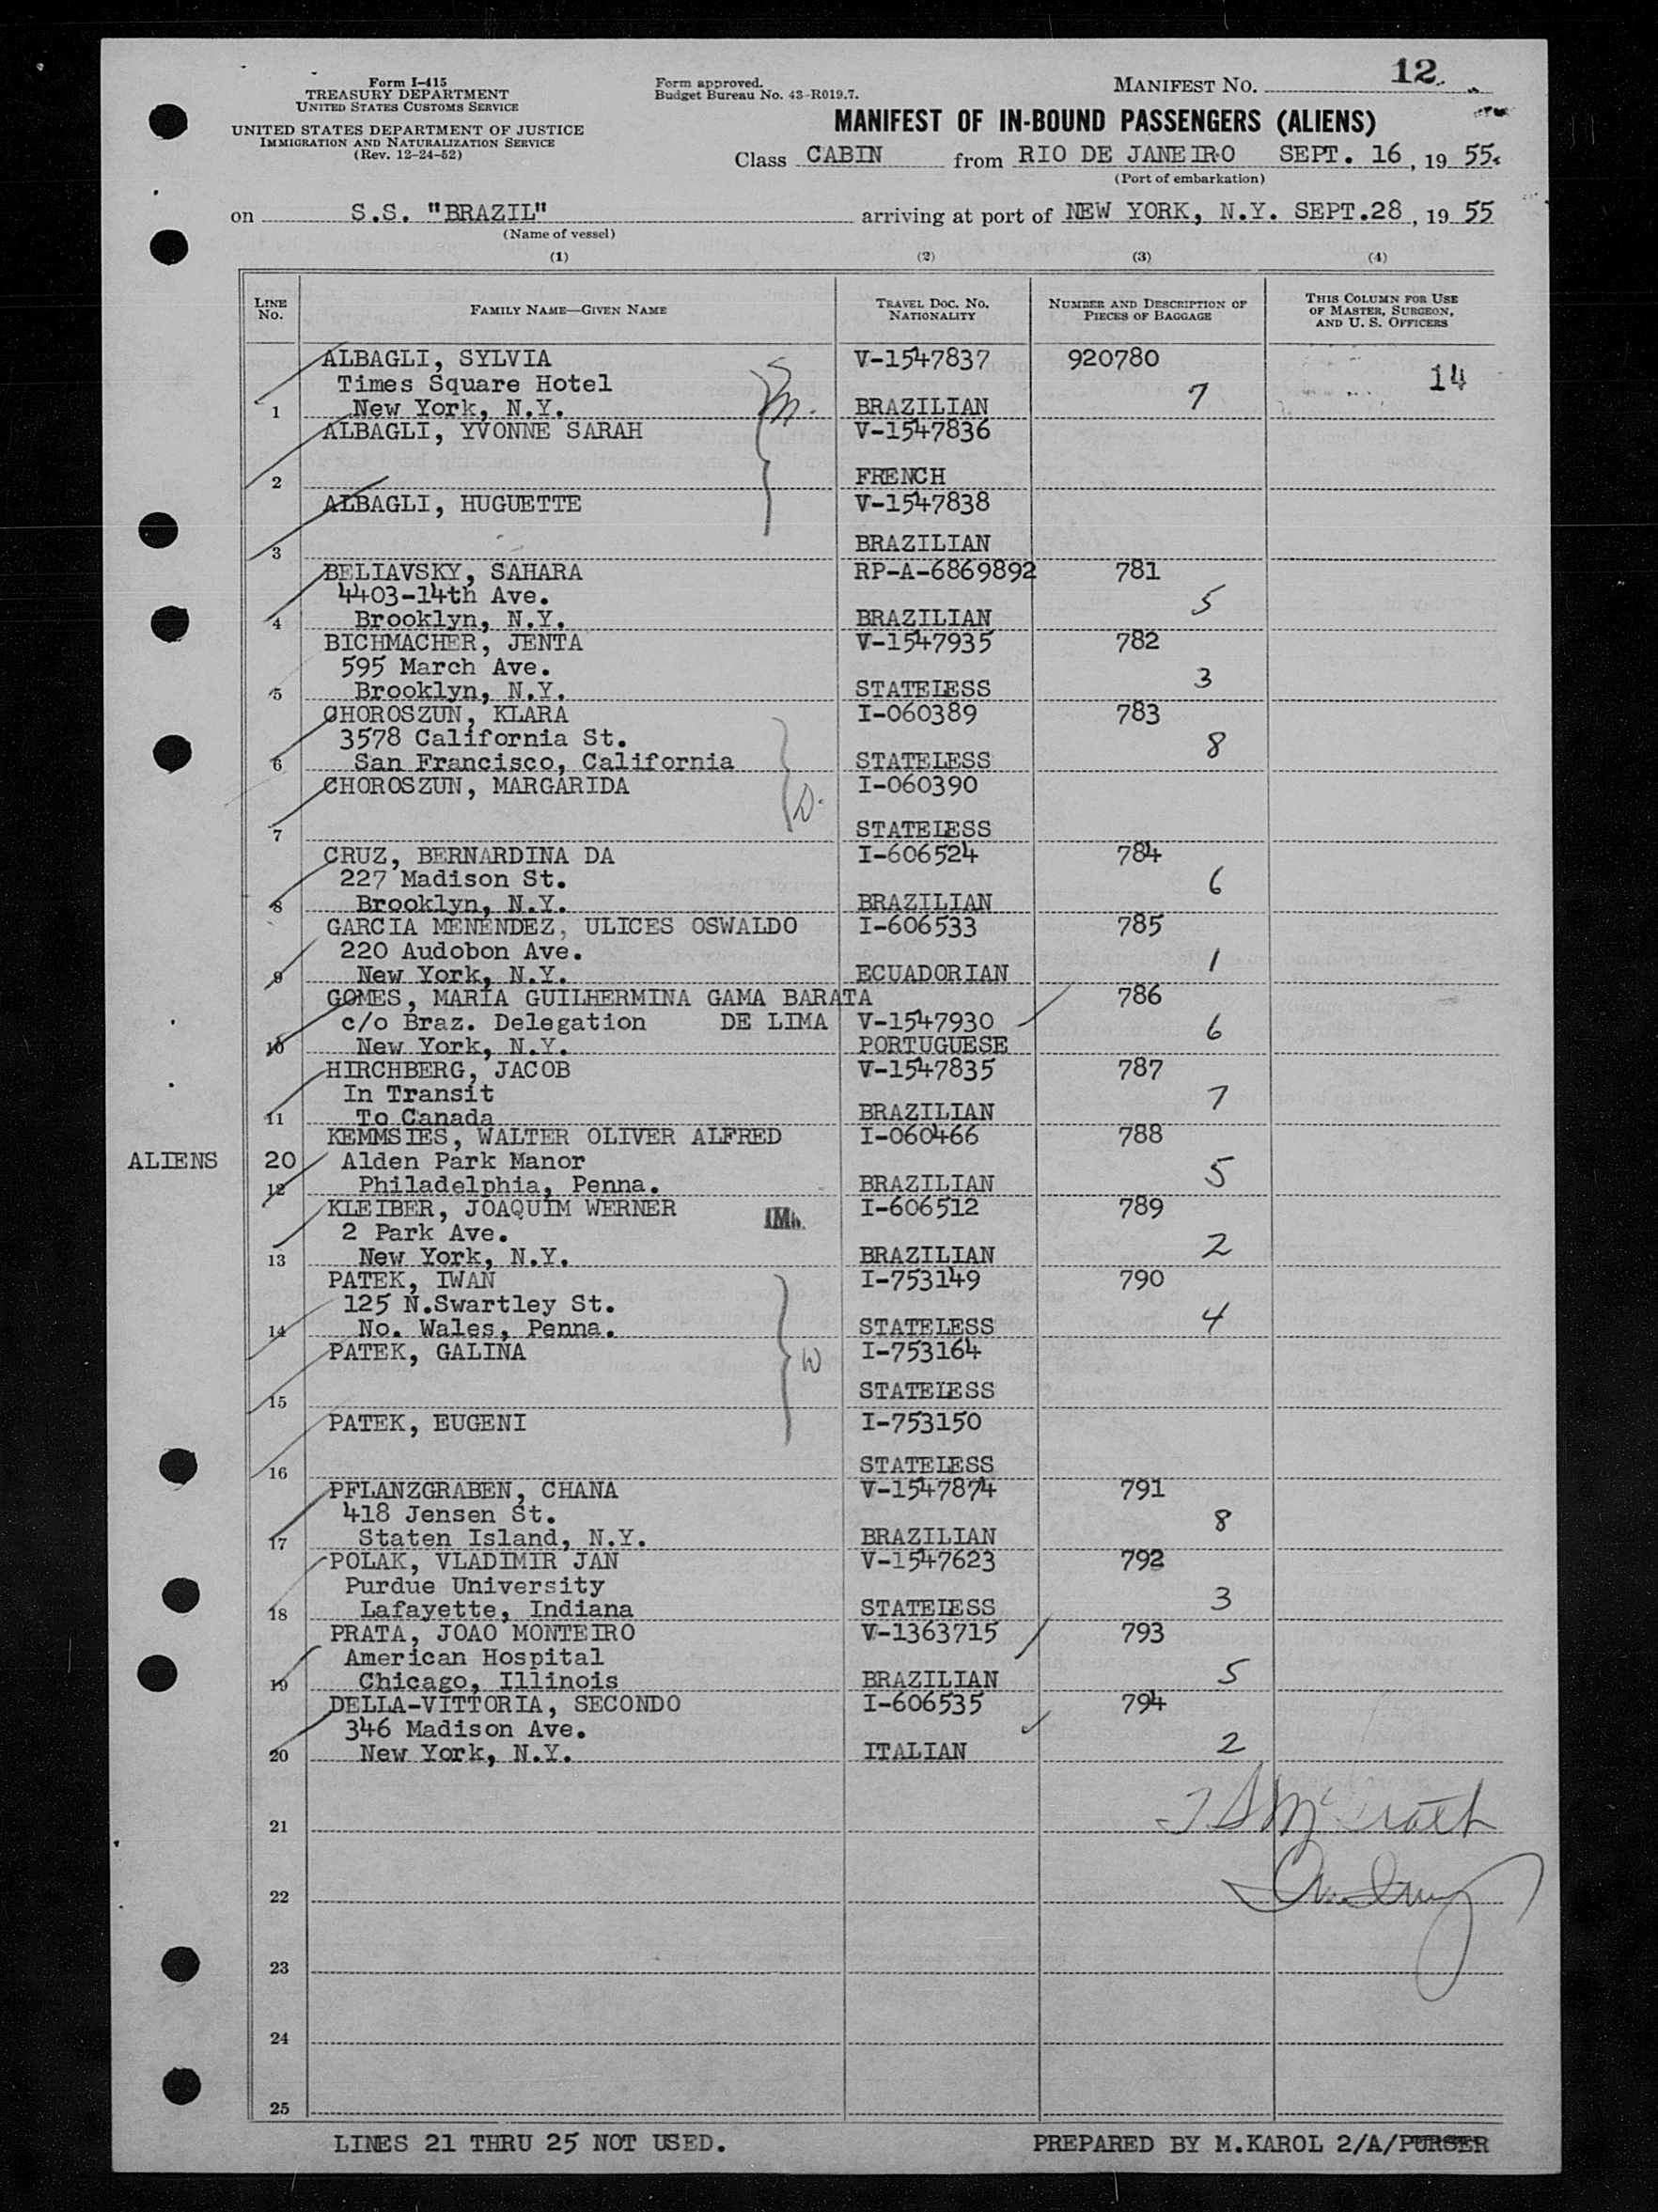 Form I-415
TREASURY DEPARTMENT
UNITED STATES CUSTOMS SERVICE
UNITED STATES DEPARTMENT OF JUSTICE
IMMIGRATION AND NATURALIZATION SERVICE
(Rev. 12-24-52)
Form approved.
Budget Bureau No. 43-R019.7.
MANIFEST NO. 12
MANIFEST OF IN-BOUND PASSENGERS (ALIENS)
Class CABIN from RIO DE JANEIRO SEPT. 16, 19 55.
(Port of embarkation)
on S.S. "BRAZIL" arriving at port of NEW YORK, N.Y. SEPT.28, 19 55
(Name of vessel)
(1) (2) (3) (4)
LINE NO. FAMILY NAME—GIVEN NAME TRAVEL DOC. NO. NATIONALITY NUMBER AND DESCRIPTION OF PIECES OF BAGGAGE THIS COLUMN FOR USE OF MASTER, SURGEON, AND U. S. OFFICERS
ALBAGLI, SYLVIA V-1547837 920780 14
Times Square Hotel 7
1 New York, N.Y. BRAZILIAN
ALBAGLI, YVONNE SARAH V-1547836
2 FRENCH
ALBAGLI, HUGUETTE V-1547838
3 BRAZILIAN
BELIAVSKY, SAHARA RP-A-6869892 781
4403-14th Ave. 5
4 Brooklyn, N.Y. BRAZILIAN
BICHMACHER, JENTA V-1547935 782
595 March Ave. 3
5 Brooklyn, N.Y. STATEIESS
CHOROSZUN, KLARA I-060389 783
3578 California St. 8
6 San Francisco, California STATELESS
CHOROSZUN, MARGARIDA I-060390
D.
7 STATEIESS
CRUZ, BERNARDINA DA I-606524 784
227 Madison St. 6
8 Brooklyn, N.Y. BRAZILIAN
GARCIA MENENDEZ, ULICES OSWALDO I-606533 785
220 Audobon Ave. 1
9 New York, N.Y. ECUADORIAN
GOMES, MARIA GUILHERMINA GAMA BARATA 786
c/o Braz. Delegation DE LIMA V-1547930 6
10 New York, N.Y. PORTUGUESE
HIRCHBERG, JACOB V-1547835 787
In Transit 7
11 To Canada BRAZILIAN
KEMMSIES, WALTER OLIVER ALFRED I-060466 788
ALIENS 20 Alden Park Manor 5
12 Philadelphia, Penna. BRAZILIAN
KLEIBER, JOAQUIM WERNER IMM. I-606512 789
2 Park Ave. 2
13 New York, N.Y. BRAZILIAN
PATEK, IWAN I-753149 790
125 N.Swartley St. 4
14 No. Wales, Penna. STATELESS
PATEK, GALINA W I-753164
15 STATEIESS
PATEK, EUGENI I-753150
16 STATEIESS
PFLANZGRABEN, CHANA V-1547874 791
418 Jensen St. 8
17 Staten Island, N.Y. BRAZILIAN
POLAK, VLADIMIR JAN V-1547623 792
Purdue University 3
18 Lafayette, Indiana STATEIESS
PRATA, JOAO MONTEIRO V-1363715 793
American Hospital 5
19 Chicago, Illinois BRAZILIAN
DELLA-VITTORIA, SECONDO I-606535 794
346 Madison Ave. 2
20 New York, N.Y. ITALIAN
21
22
23
24
25
LINES 21 THRU 25 NOT USED. PREPARED BY M.KAROL 2/A/PURSER